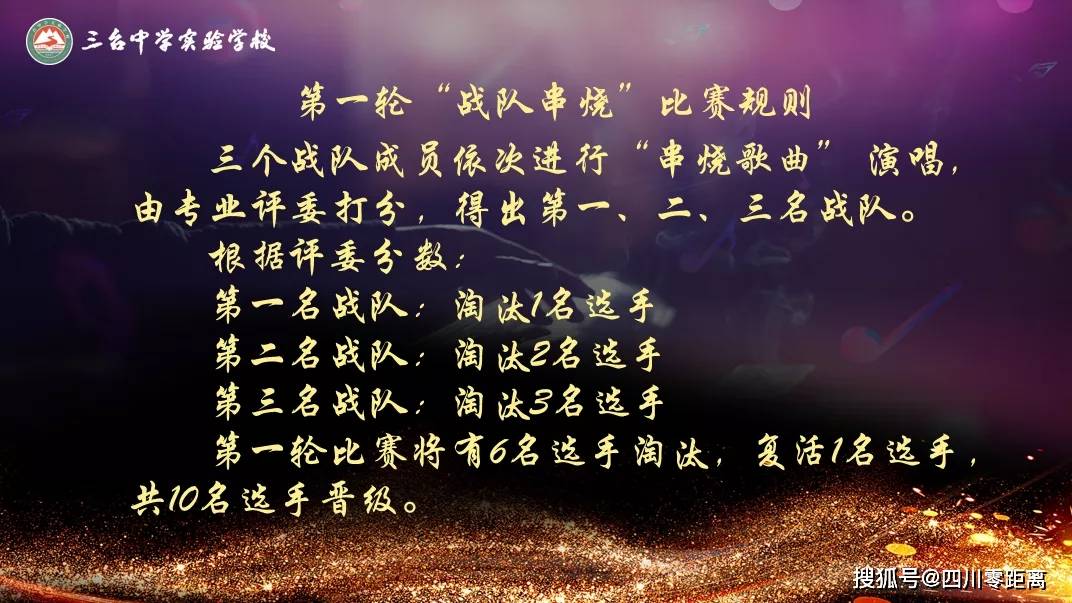 三台中学实验学校
第一轮“战队串烧”比赛规则
三个战队成员依次进行“串烧歌曲”演唱，
由专业评委打分，得出第一、二、三名战队。
根据评委分数：
第一名战队：淘汰1名选手
第二名战队：淘汰2名选手
第三名战队：淘汰3名选手
第一轮比赛将有6名选手淘汰，复活1名选手，
共10名选手晋级。
搜狐号@四川零距离